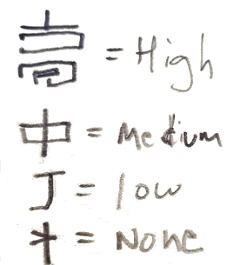 高 = High
中 = Medium
= low
= None